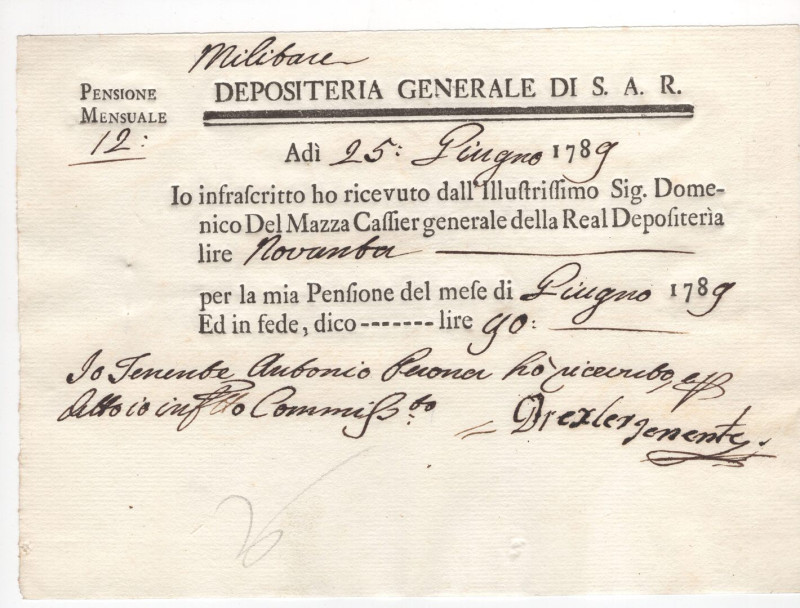 Militare
PENSIONE
MENSUALE
12:
DEPOSITERIA GENERALE DI S. A. R.
Adì 25: Giugno 1789
Io infraſcritto ho ricevuto dall'Illuſtriſſimo Sig. Dome-
nico Del Mazza Caſſier generale della Real Depoſiterìa
lire Novanta
per la mia Penſione del meſe di Giugno 1789
Ed in fede, dico ------- lire 90:
Io Tenente Antonio ho ricevuto, e
detto io Commiss.to
= Drexler Tenente.